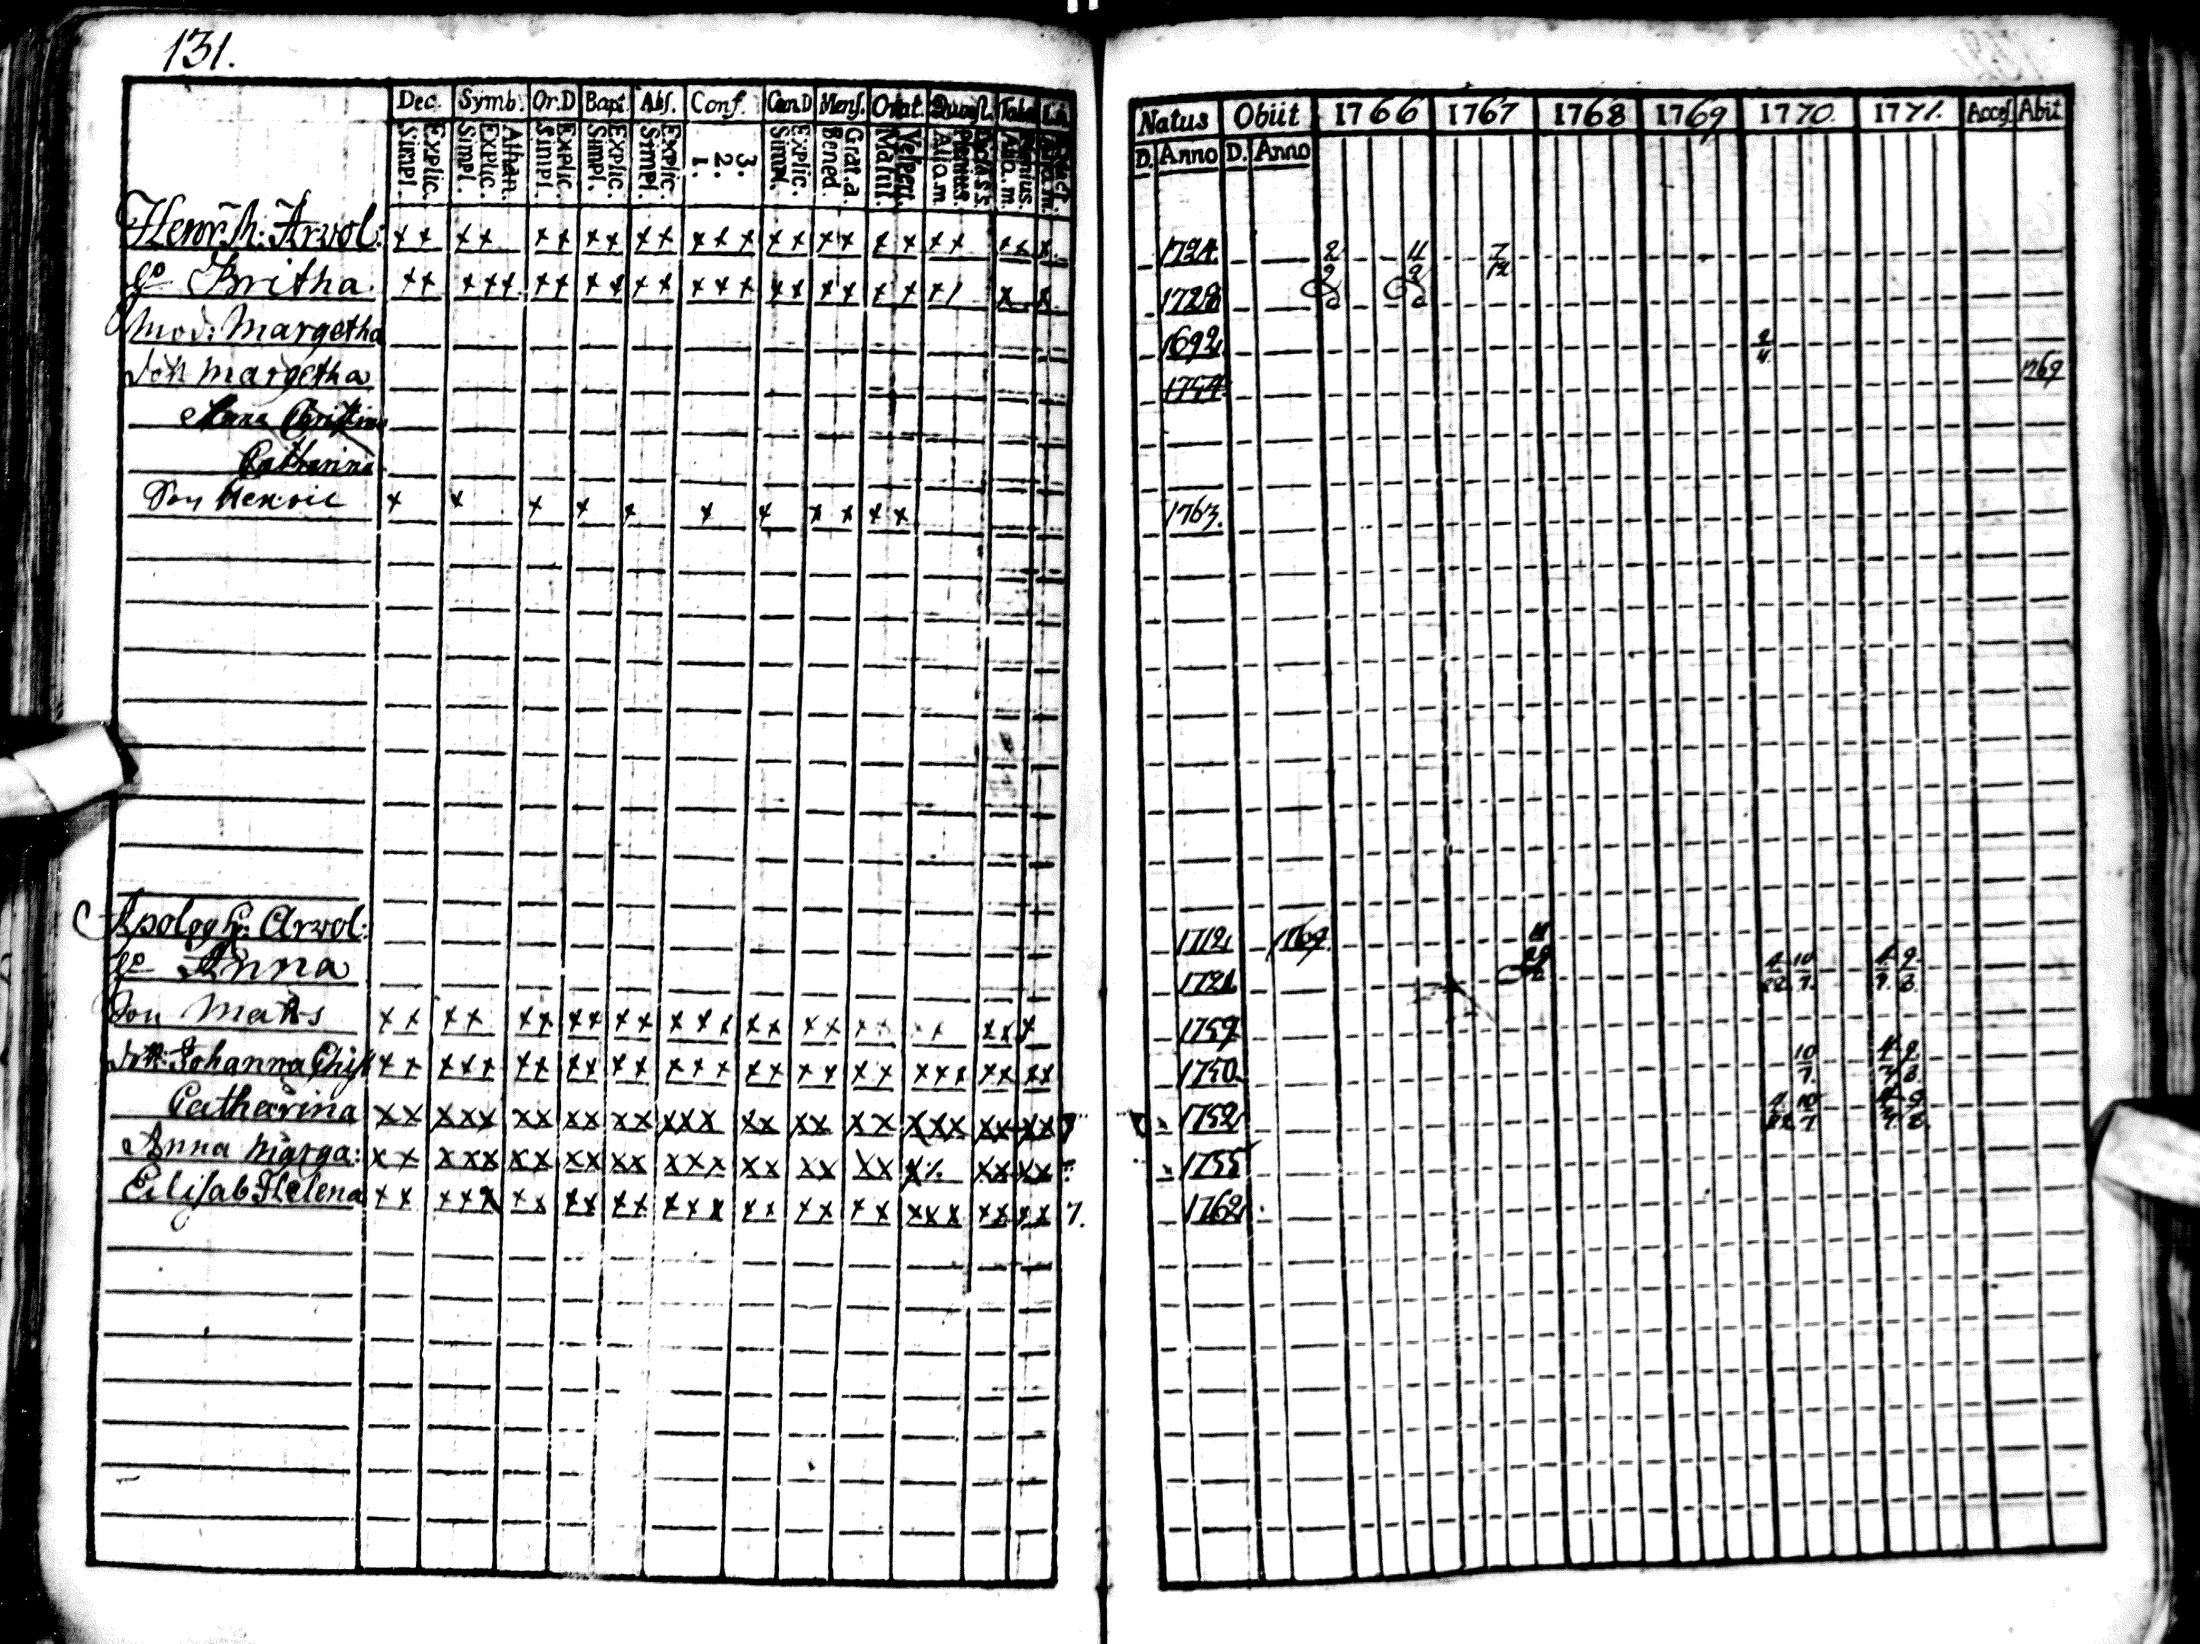 131.
Dec. Symb. Or.D Bapt. Abs. Conf. Cœn.D Mens. Orat. Quæst. Tab.
Simpl. Explic. Simpl. Explic. Athan. Simpl. Explic. Simpl. Explic. Simpl. Explic. 1. 2. 3. Simpl. Explic. Bened. Grat.a. Matut. Vespert. Aliq.m. Plenius. Aliq.m. Plenius.
Henr: M: Arvol: x x x x x x x x x x x x x x x x x x x x x x x x
H:o Britha x x x x x x x x x x x x x x x x x x x x x / x x
Mod: Margetha
Dott Margetha
Anna Christina
Catharina
Son Henric x x x x x x x x x x x
Arvol:
H:o Anna
Son Mats x x x x x x x x x x x x x x x x x x x x x x x x
Dott: Johanna Chist x x x x x x x x x x x x x x x x x x x x x x x x x x x
Catharina x x x x x x x x x x x x x x x x x x x x x x x x x x x
Anna Marga: x x x x x x x x x x x x x x x x x x x x x % x x x x
Elisab Helena x x x x x x x x x x x x x x x x x x x x x x x x x x x 7.
Natus Obiit 1766 1767 1768 1769 1770. 1771. Access Abit
D. Anno D. Anno
1724 2 11 7 12
1728
1692 2 4
1754 1769
1763.
1712 1769. 11
1721 4 22 10 7. 4 7. 9 8.
1759
1750 10 7. 4 7 9 8.
1752 4 22 10 7 4 7. 9 8.
1755
1762